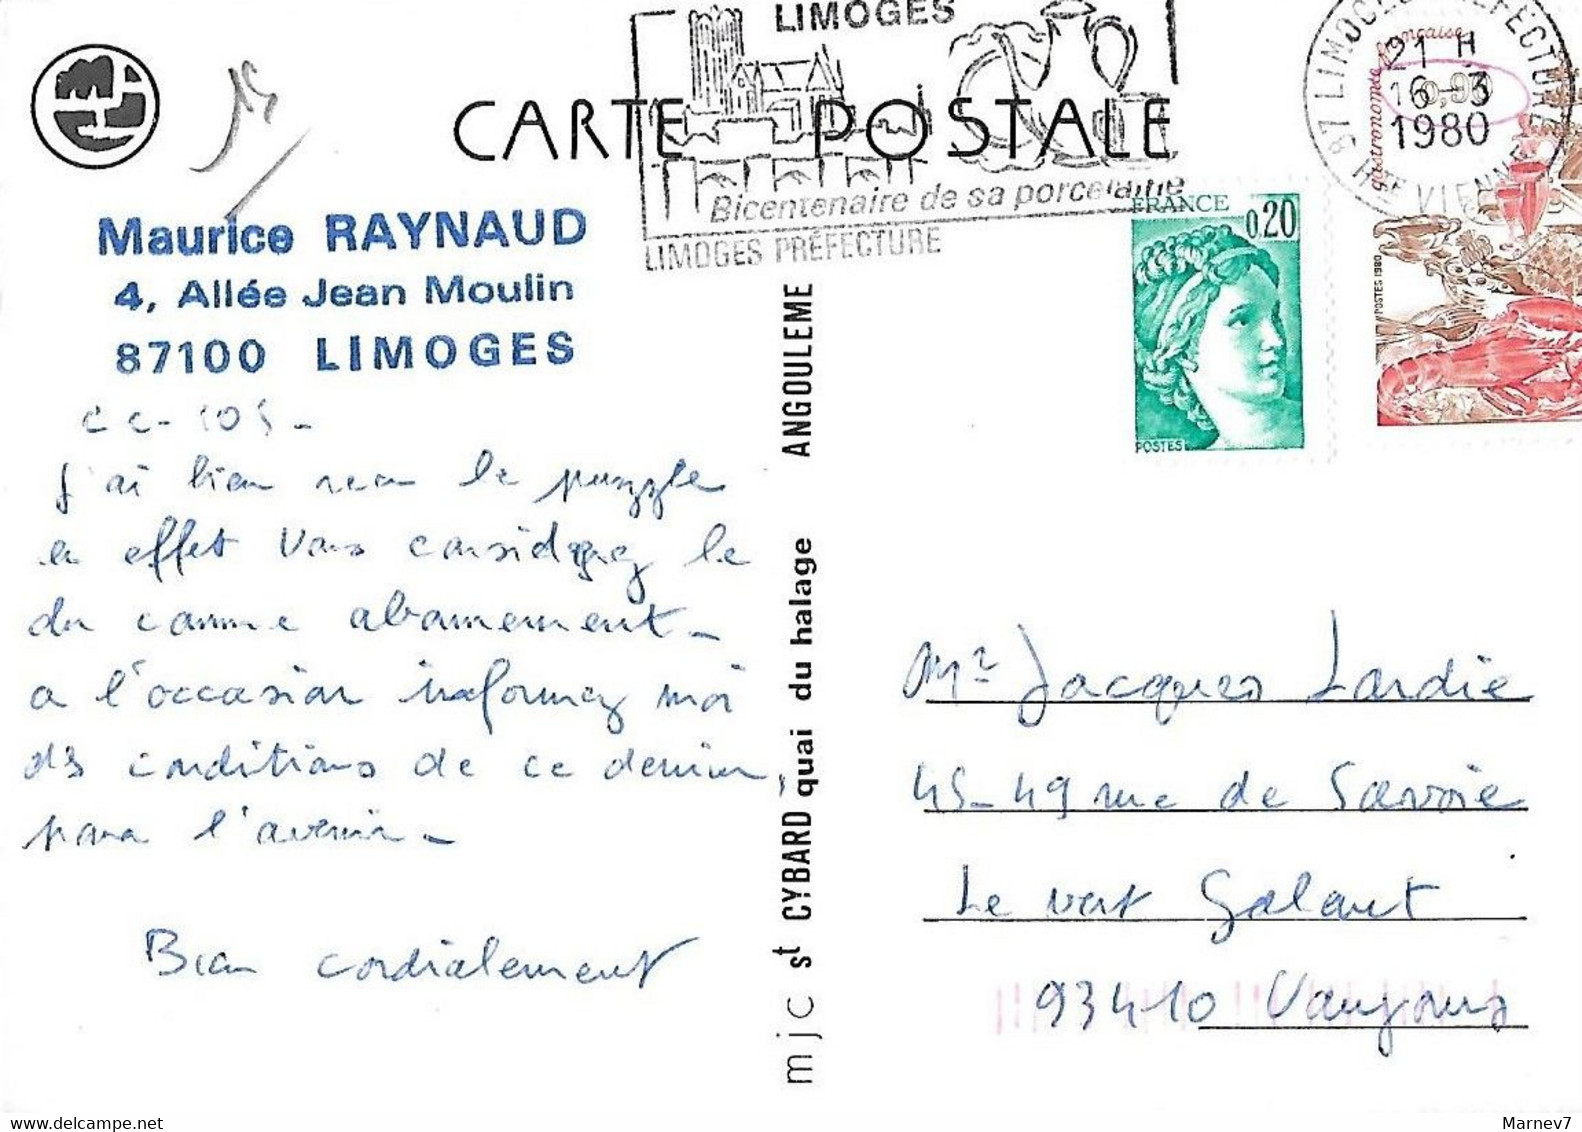 LIMOGES
CARTE POSTALE
Bicentenaire de sa porcelaine
LIMOGES PRÉFECTURE
87 LIMOGES PREFECTURE
21 H
16-3
1980
HTE VIENNE
gastronomie française
0,90
POSTES 1980
FRANCE
0,20
POSTES
Maurice RAYNAUD
4, Allée Jean Moulin
87100 LIMOGES
CC-105-
J'ai bien reçu le puzzle
en effet vous considérez le
du comme abonnement -
a l'occasion informez moi
des conditions de ce dernier,
pour l'avenir -
Bien cordialement
mjc st CYBARD quai du halage ANGOULEME
Mr Jacques Lardie
45-49 rue de Savoie
Le vert Galant
93410 Vaujours
Marnev7